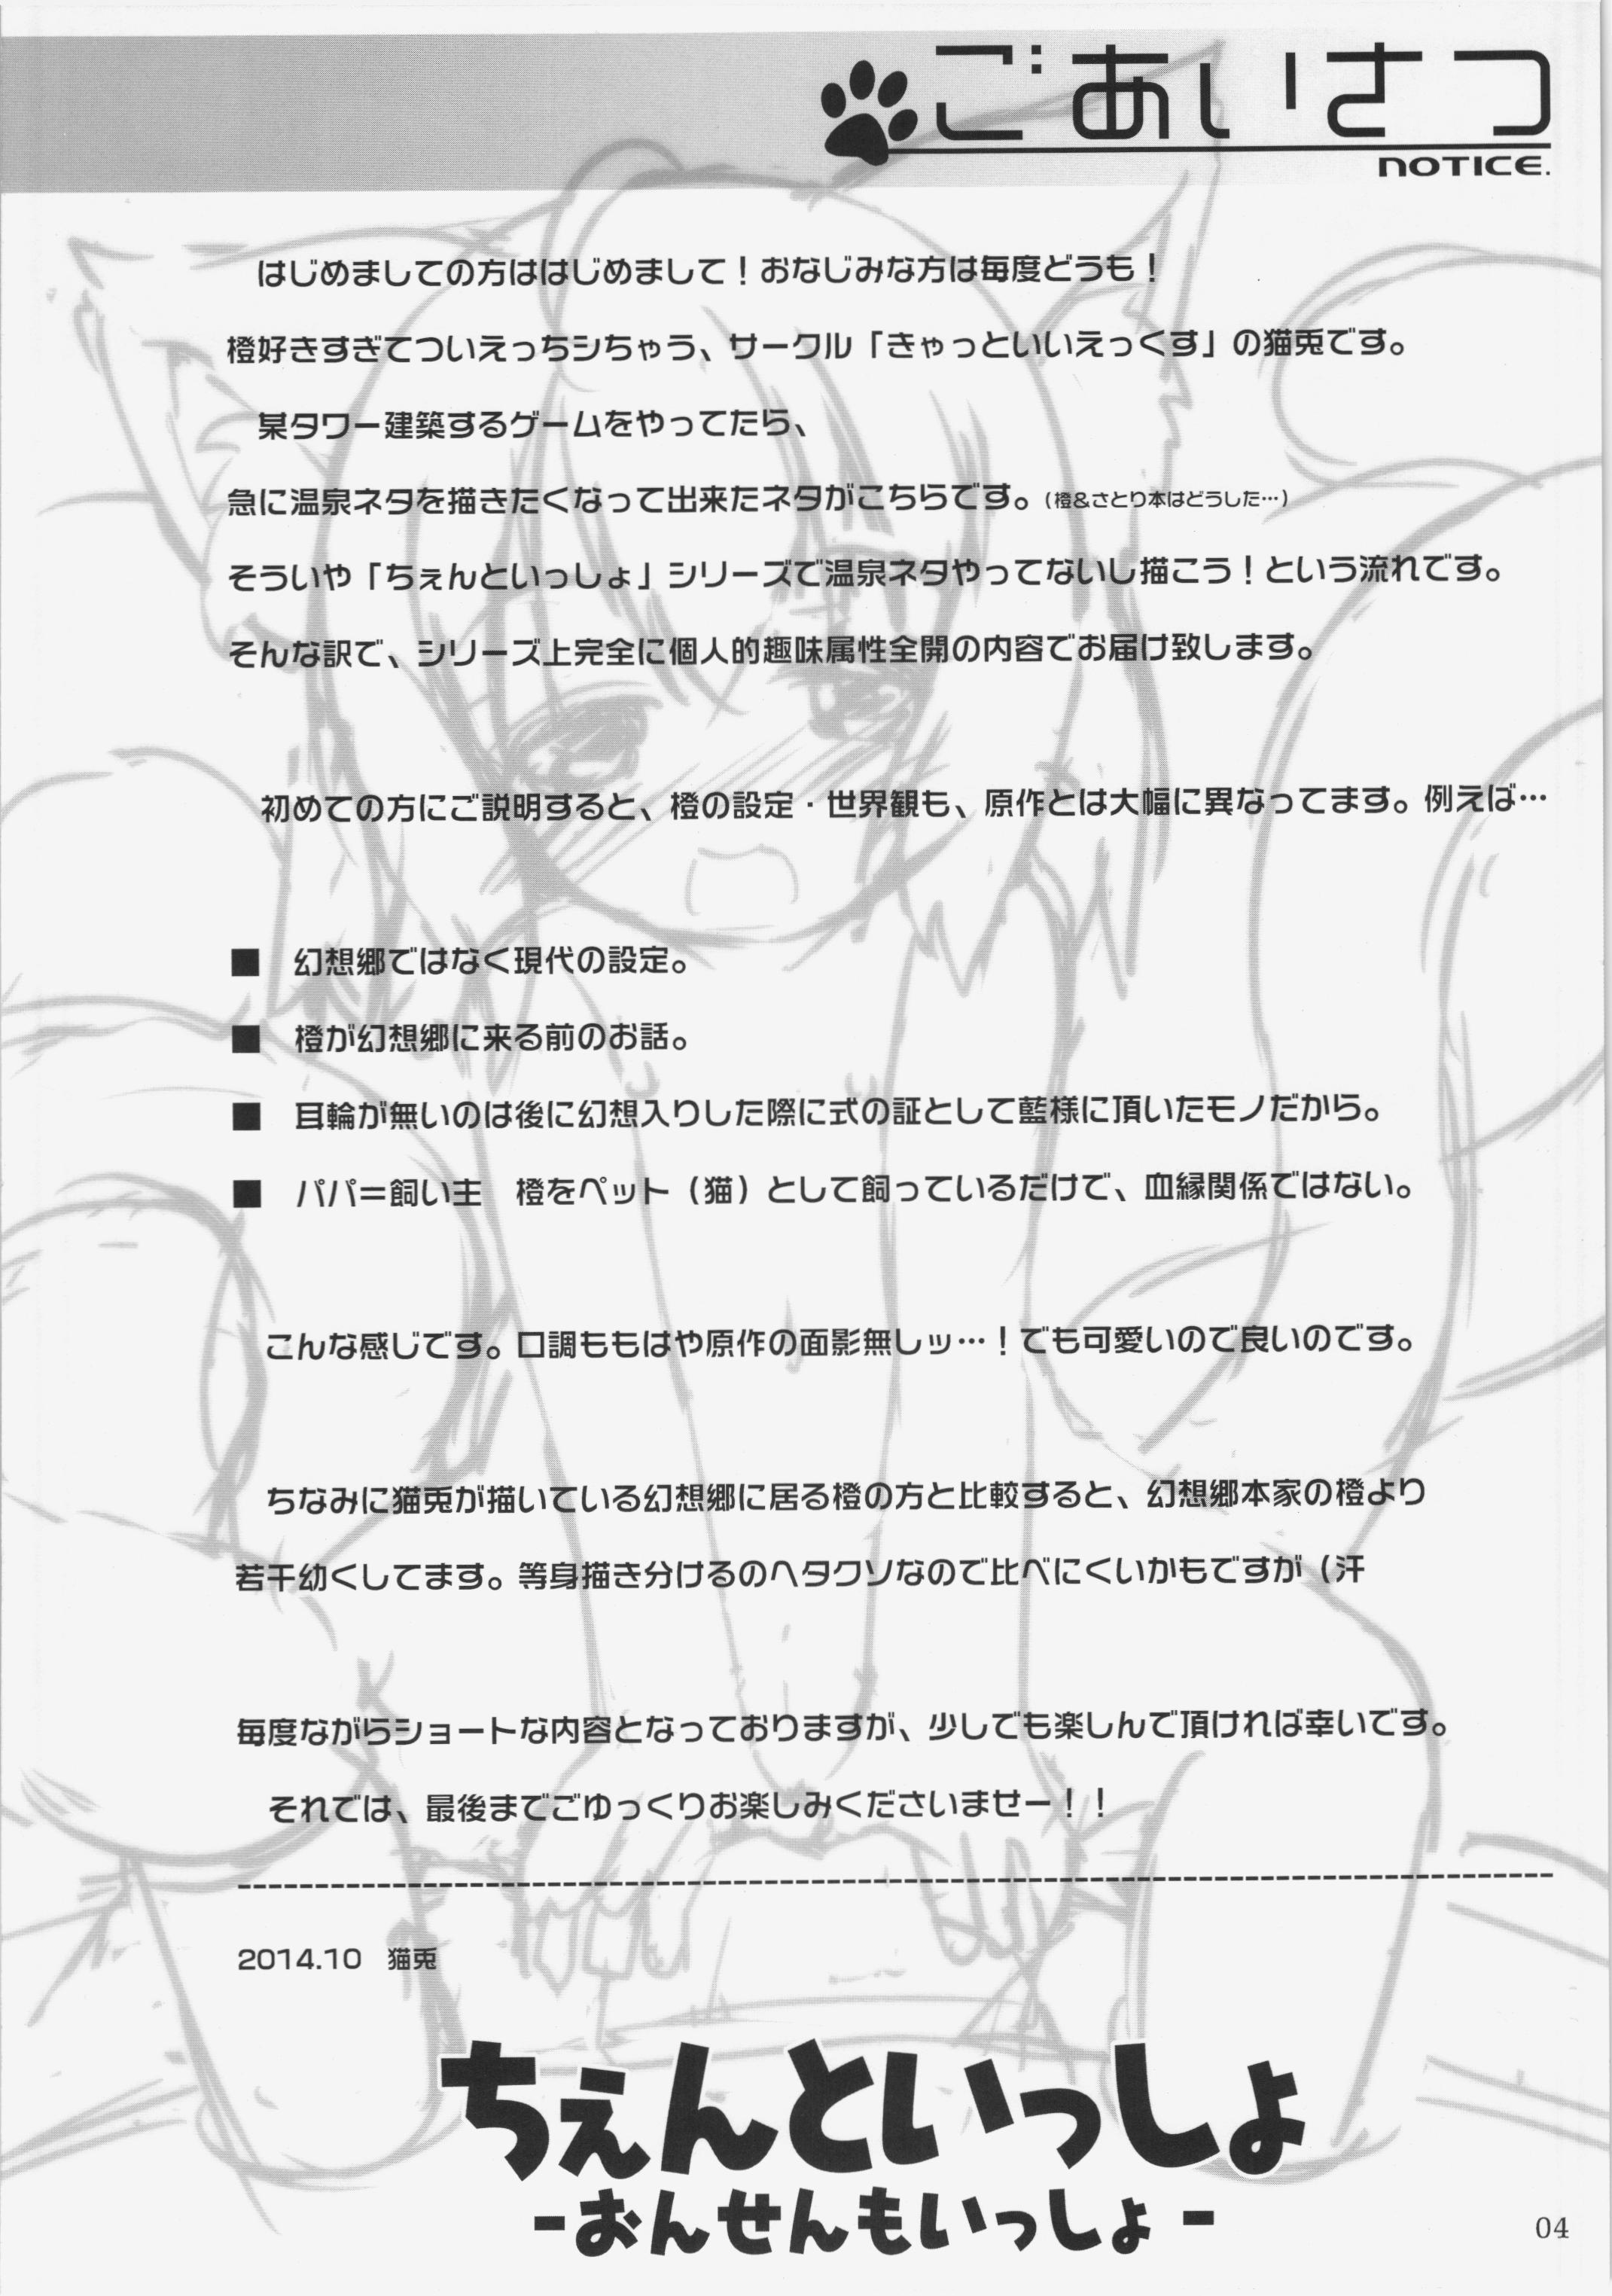 ごあいさつ
NOTICE.
はじめましての方ははじめまして！おなじみな方は毎度どうも！
橙好きすぎてついえっちシちゃう、サークル「きゃっといいえっくす」の猫兎です。
某タワー建築するゲームをやってたら、
急に温泉ネタを描きたくなって出来たネタがこちらです。（橙&さとり本はどうした…）
そういや「ちぇんといっしょ」シリーズで温泉ネタやってないし描こう！という流れです。
そんな訳で、シリーズ上完全に個人的趣味属性全開の内容でお届け致します。
初めての方にご説明すると、橙の設定・世界観も、原作とは大幅に異なってます。例えば…
■ 幻想郷ではなく現代の設定。
■ 橙が幻想郷に来る前のお話。
■ 耳輪が無いのは後に幻想入りした際に式の証として藍様に頂いたモノだから。
■ パパ＝飼い主　橙をペット（猫）として飼っているだけで、血縁関係ではない。
こんな感じです。口調ももはや原作の面影無しッ…！でも可愛いので良いのです。
ちなみに猫兎が描いている幻想郷に居る橙の方と比較すると、幻想郷本家の橙より
若干幼くしてます。等身描き分けるのヘタクソなので比べにくいかもですが（汗
毎度ながらショートな内容となっておりますが、少しでも楽しんで頂ければ幸いです。
それでは、最後までごゆっくりお楽しみくださいませー！！
2014.10　猫兎
ちぇんといっしょ
-おんせんもいっしょ-
04